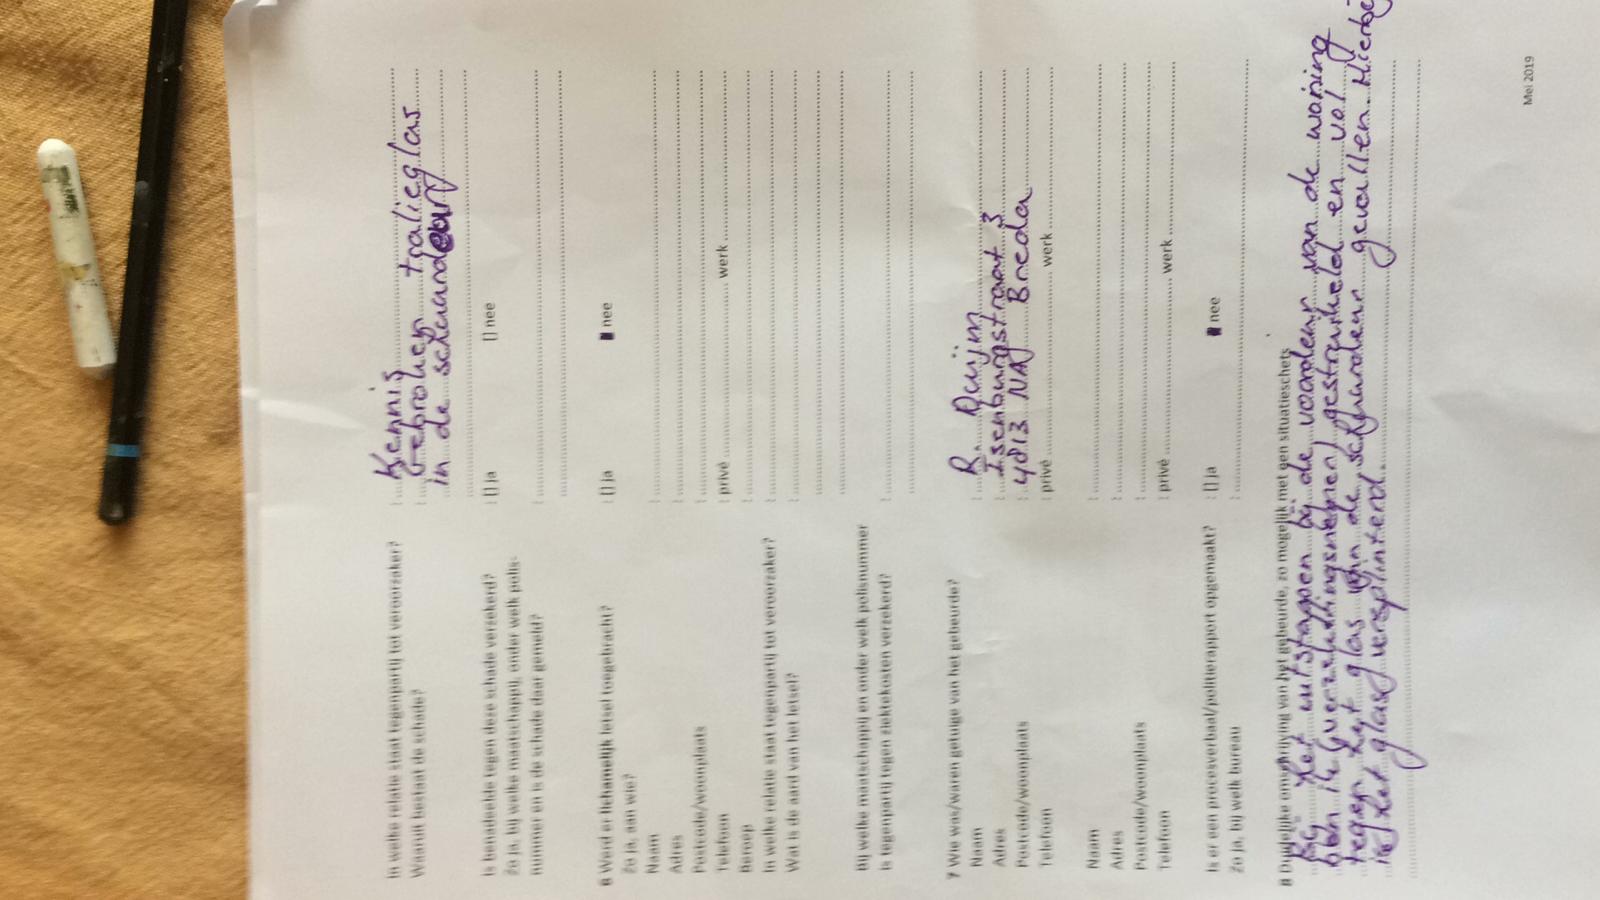 In welke relatie staat tegenpartij tot veroorzaker? : Kennis
Waaruit bestaat de schade? : Gebroken tralieglas
in de schuurdeur
Is benadeelde tegen deze schade verzekerd? : [] ja [] nee
Zo ja, bij welke maatschappij, onder welk polis-
nummer en is de schade daar gemeld? :
6 Werd er lichamelijk letsel toegebracht? : [] ja nee
Zo ja, aan wie?
Naam :
Adres :
Postcode/woonplaats :
Telefoon : privé werk
Beroep :
In welke relatie staat tegenpartij tot veroorzaker? :
Wat is de aard van het letsel? :
Bij welke maatschappij en onder welk polisnummer
is tegenpartij tegen ziektekosten verzekerd? :
7 Wie was/waren getuige van het gebeurde?
Naam : R. Duijm
Adres : Isenburgstraat 3
Postcode/woonplaats : 4813 NA Breda
Telefoon : privé werk
Naam :
Adres :
Postcode/woonplaats :
Telefoon : privé werk
Is er een procesverbaal/politierapport opgemaakt? : [] ja nee
Zo ja, bij welk bureau :
8 Duidelijke omschrijving van het gebeurde, zo mogelijk met een situatieschets
Bij het uitstappen bij de voordeur van de woning
ben ik (verzekeringsnemer) gestruikeld en vol
tegen het glas van de schuurdeur gevallen. Hierbij
is het glas versplinterd.
Mei 2019